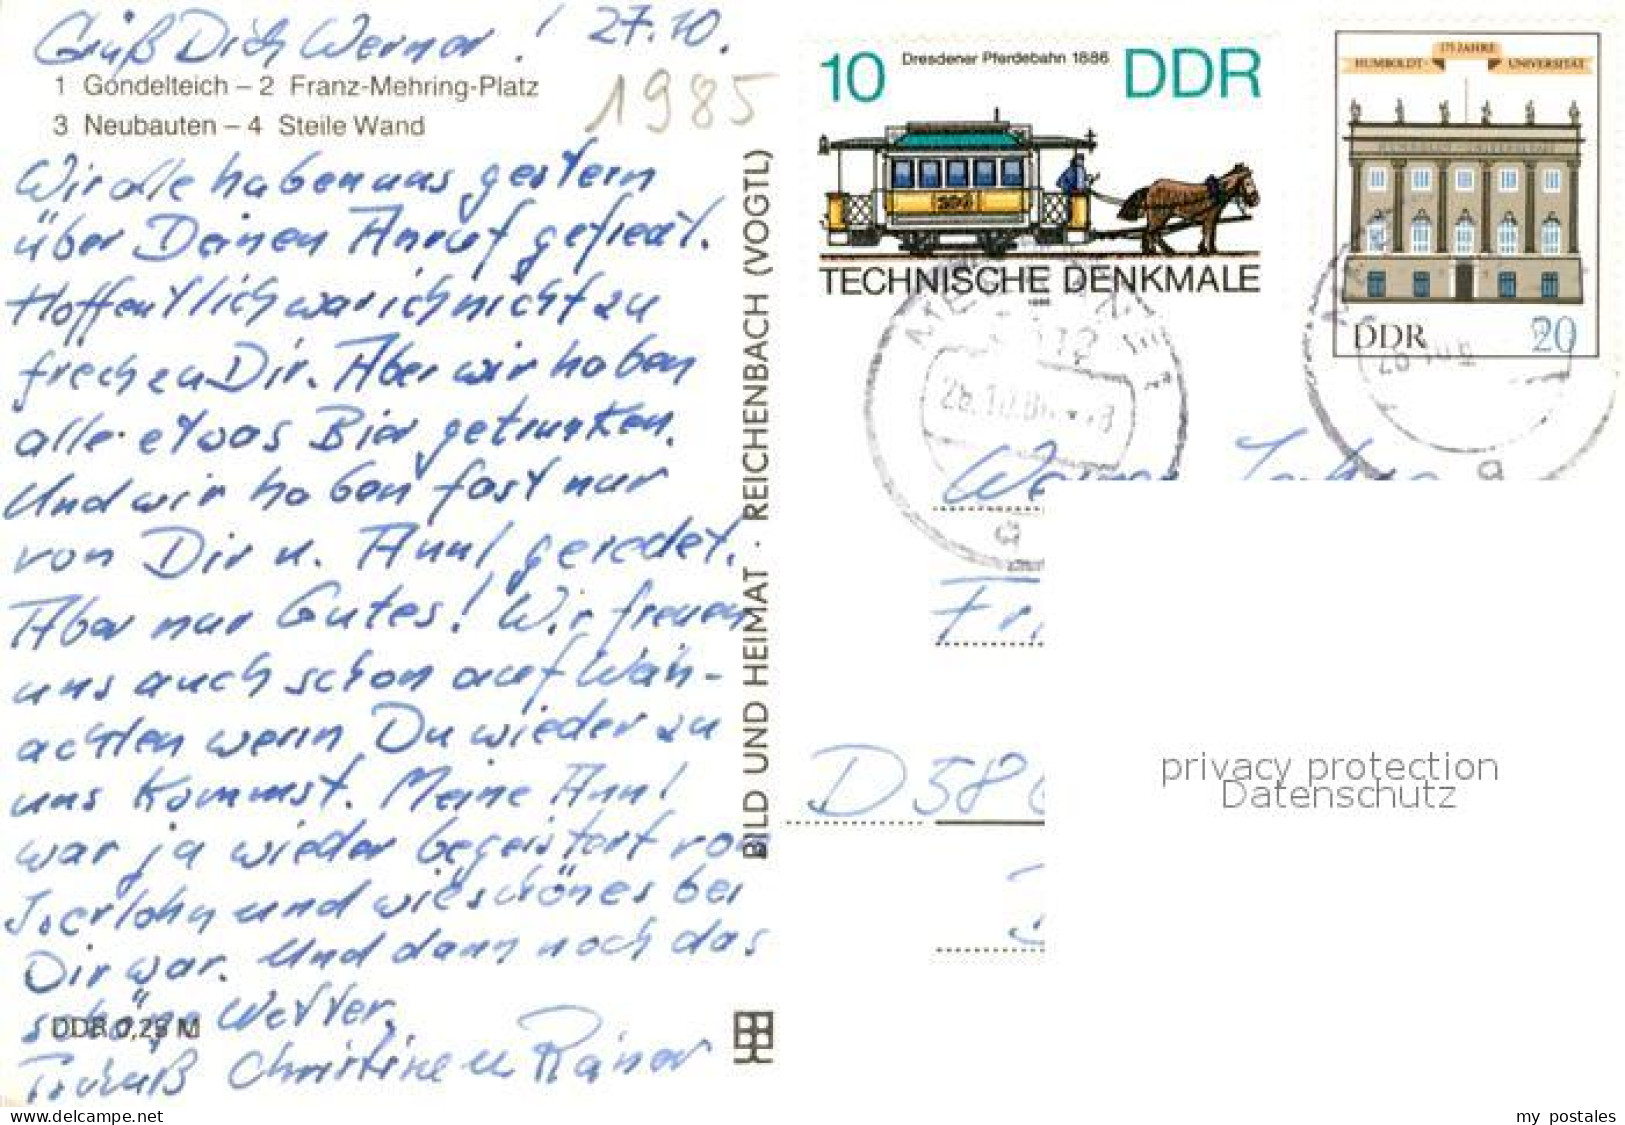 Grüß Dich Werner! 27.10.
1 Gondelteich – 2 Franz-Mehring-Platz
1985
3 Neubauten – 4 Steile Wand
Wir alle haben uns gestern
über Deinen Anruf gefreut.
Hoffentlich war ich nicht zu
frech zu Dir. Aber wir haben
alle etwas Bier getrunken.
Und wir haben fast nur
von Dir u. Annl geredet.
Aber nur Gutes! Wir freuen
uns auch schon auf Weih-
achten wenn Du wieder zu
uns kommst. Meine Annl
war ja wieder begeistert von
Iserlohn und wie schönes bei
Dir war. Und dann noch das
schöne Wetter.
DDR 0,25 M
Christine u Rainer
BILD UND HEIMAT · REICHENBACH (VOGTL)
10 Dresdener Pferdebahn 1886 DDR
TECHNISCHE DENKMALE
1986
175 JAHRE
HUMBOLDT- UNIVERSITÄT
HUMBOLDT-UNIVERSITÄT
DDR 20
Werner
D 58
privacy protection
Datenschutz
delcampe.net
my_postales